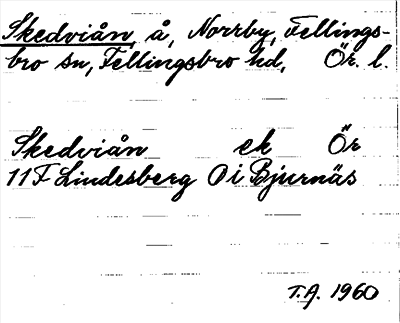 Skedviån, å, Norrby, Fellings-
bro sn, Fellingsbro hd, Ör. l.
Skedviån ek Ör
11 F Lindesberg O i Bjurnäs
T.A. 1960